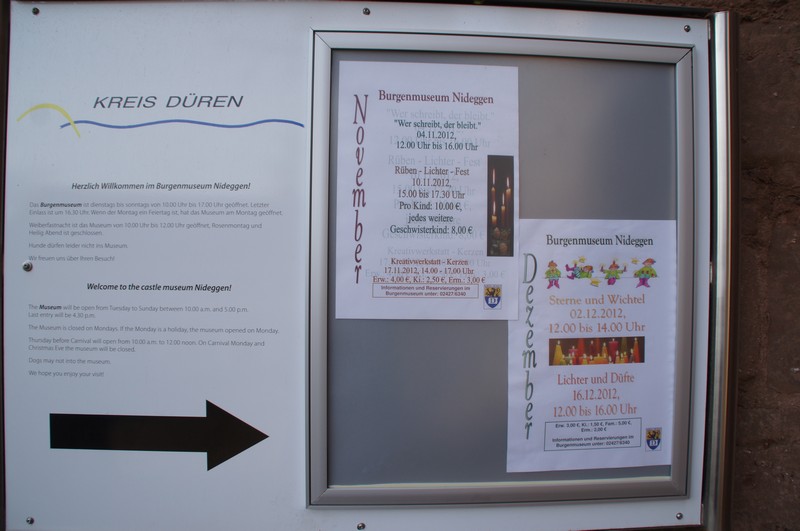 KREIS DÜREN
Herzlich Willkommen im Burgenmuseum Nideggen!
Das Burgenmuseum ist dienstags bis sonntags von 10.00 Uhr bis 17.00 Uhr geöffnet. Letzter
Einlass ist um 16.30 Uhr. Wenn der Montag ein Feiertag ist, hat das Museum am Montag geöffnet.
Weiberfastnacht ist das Museum von 10.00 Uhr bis 12.00 Uhr geöffnet, Rosenmontag und
Heilig Abend ist geschlossen.
Hunde dürfen leider nicht ins Museum.
Wir freuen uns über Ihren Besuch!
Welcome to the castle museum Nideggen!
The Museum will be open from Tuesday to Sunday between 10.00 a.m. and 5.00 p.m.
Last entry will be 4.30 p.m.
The Museum is closed on Mondays. If the Monday is a holiday, the museum opened on Monday.
Thursday before Carnival will open from 10.00 a.m. to 12.00 noon. On Carnival Monday and
Christmas Eve the museum will be closed.
Dogs may not into the museum.
We hope you enjoy your visit!
November
Burgenmuseum Nideggen
"Wer schreibt, der bleibt."
04.11.2012,
12.00 Uhr bis 16.00 Uhr
Rüben - Lichter - Fest
10.11.2012,
15.00 bis 17.30 Uhr
Pro Kind: 10.00 €,
jedes weitere
Geschwisterkind: 8,00 €
Kreativwerkstatt - Kerzen
17.11.2012, 14.00 - 17.00 Uhr
Erw.: 4,00 €, Ki.: 2,50 €, Erm.: 3,00 €
Informationen und Reservierungen im
Burgenmuseum unter: 02427/6340
Dezember
Burgenmuseum Nideggen
Sterne und Wichtel
02.12.2012,
12.00 bis 14.00 Uhr
Lichter und Düfte
16.12.2012,
12.00 bis 16.00 Uhr
Erw. 3,00 €, Ki.: 1,50 €, Fam.: 5,00 €,
Erm.: 2,00 €
Informationen und Reservierungen im
Burgenmuseum unter: 02427/6340